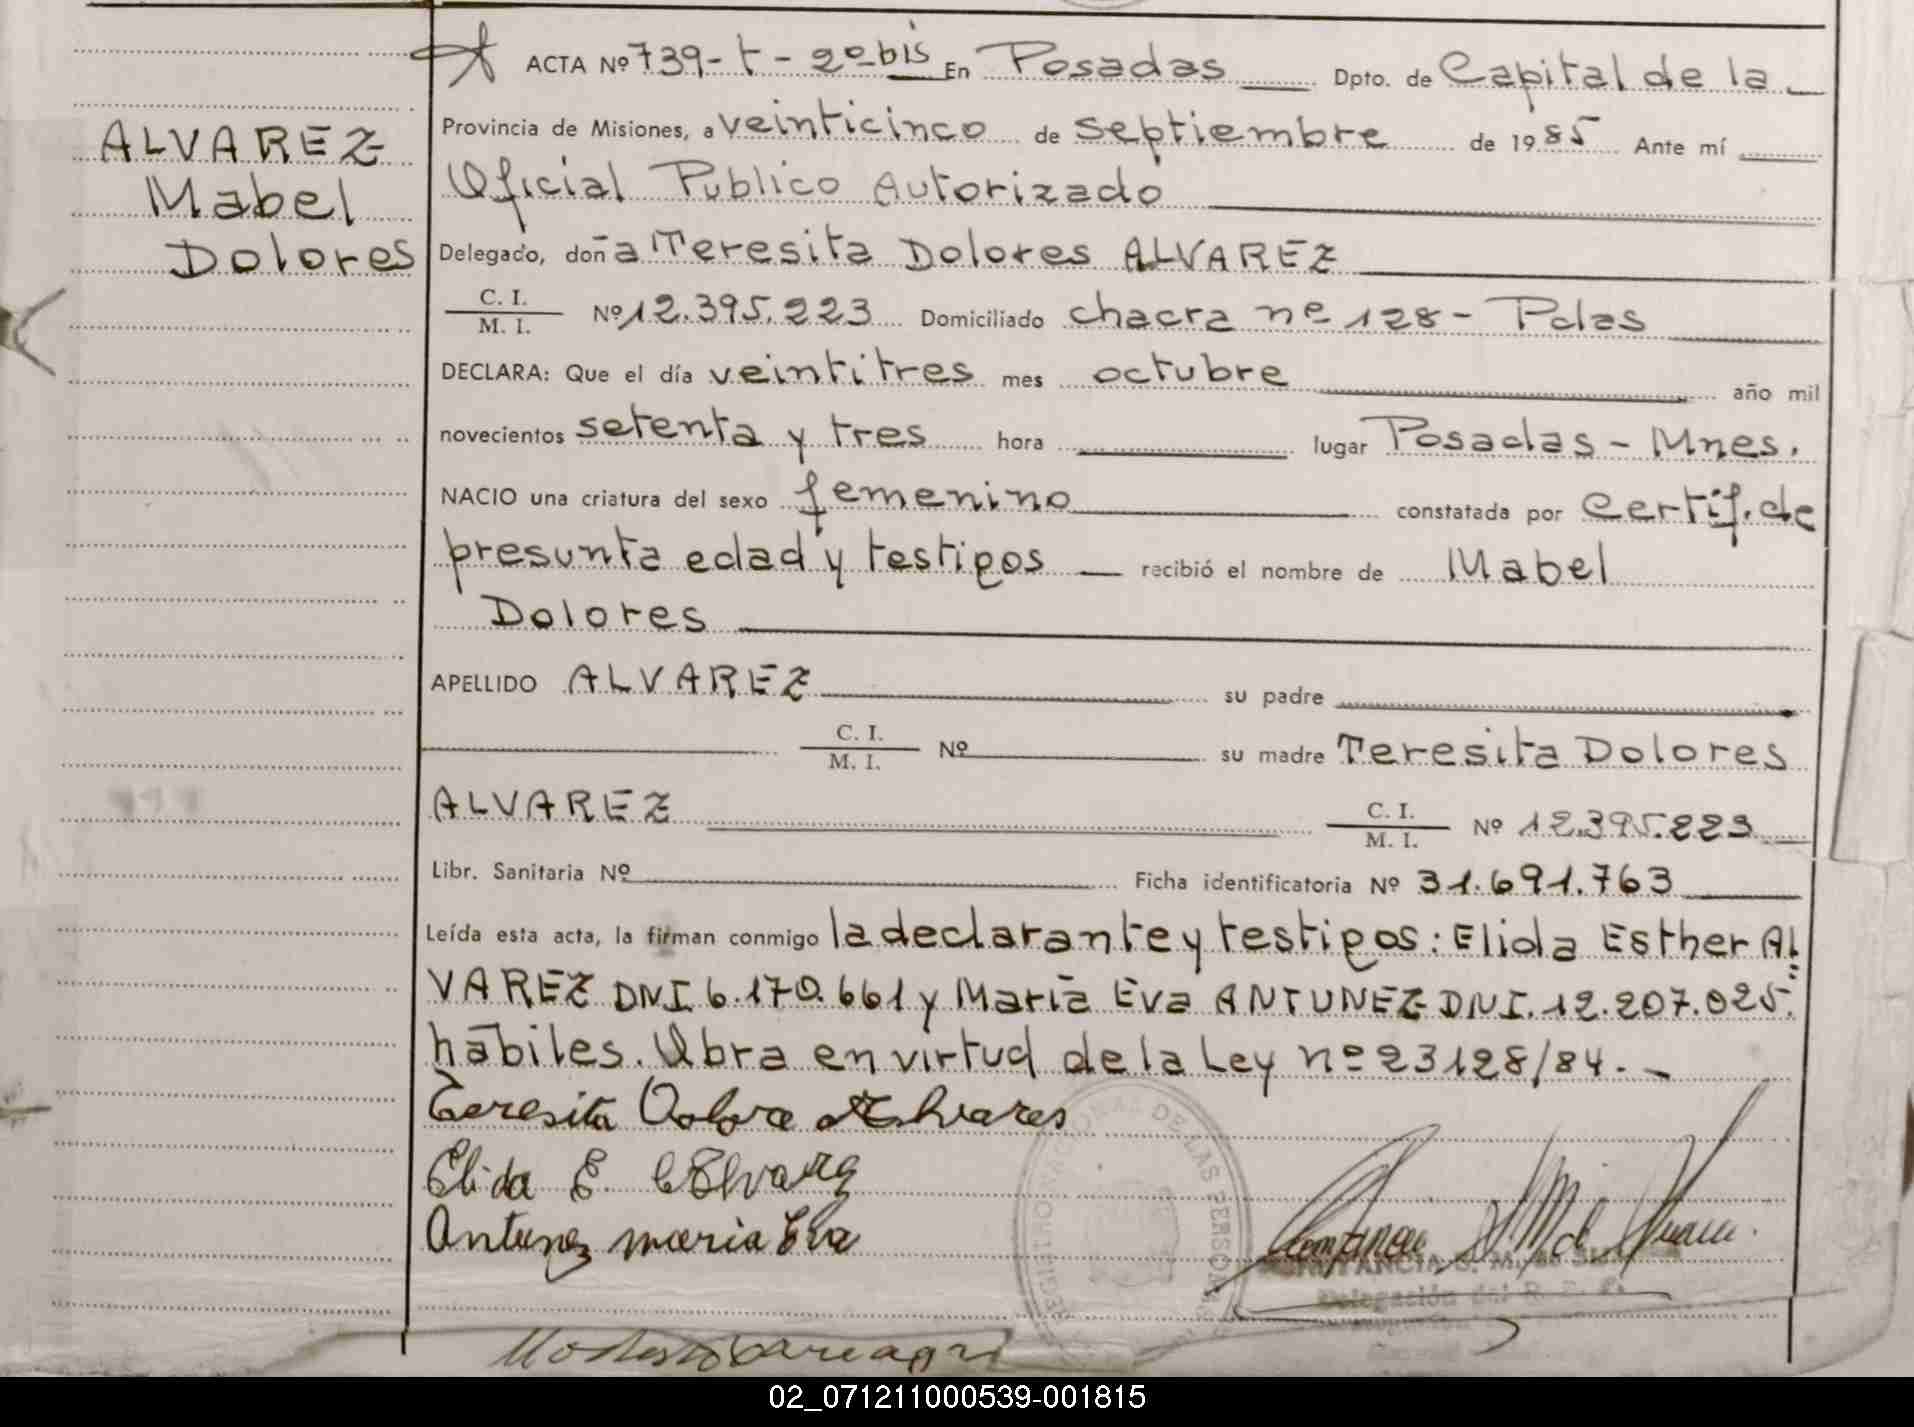 ACTA Nº 739-t-2º bis En Posadas Dpto. de Capital de la
ALVAREZ
Mabel
Dolores
Provincia de Misiones, a veinticinco de septiembre de 1985 Ante mí
Oficial Publico Autorizado
Delegado, doña Teresita Dolores ALVAREZ
C. I.
M. I. Nº 12.395.223 Domiciliado chacra nº 128 - Pdas
DECLARA: Que el día veintitres mes octubre año mil
novecientos setenta y tres hora lugar Posadas - Mnes.
NACIO una criatura del sexo femenino constatada por Certif. de
presunta edad y testigos recibió el nombre de Mabel
Dolores
APELLIDO ALVAREZ su padre
C. I.
M. I. Nº su madre Teresita Dolores
ALVAREZ C. I.
M. I. Nº 12.395.223
Libr. Sanitaria Nº Ficha identificatoria Nº 31.691.763
Leída esta acta, la firman conmigo la declarante y testigos: Elida Esther AL
VAREZ DNI 6.170.661 y Maria Eva ANTUNEZ DNI. 12.207.025.
habiles. Obra en virtud de la Ley nº 23128/84.-
Teresita Dolore Alvares
Elida E. Alvarez
Antunez maria Eva
DE LAS PERSONAS
Delegación del R. P.
02_071211000539-001815